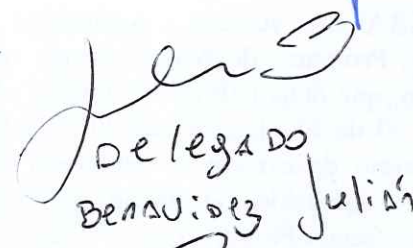 DelegADO
BenAViDez Julián